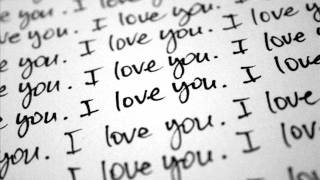 love you. I
love you. I love you.
you. I love you. I love
you. I love you. I love you.
love you. I love you. I love
you. I love you. I love
you. I love you. I love
I love you. I love